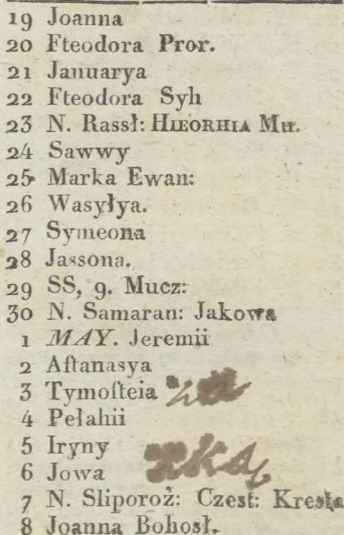 19 Joanna
20 Fteodora Pror.
21 Januarya
22 Fteodora Syh
23 N. Rassł: HIEORHIA Mu.
24 Sawwy
25 Marka Ewan:
26 Wasyłya.
27 Symeona
28 Jassona.
29 SS, 9. Mucz:
30 N. Samaran: Jakowa
1 MAY. Jeremii
2 Aftanasya
3 Tymofteia
4 Pełahii
5 Iryny
6 Jowa
7 N. Sliporoż: Czest: Kresta
8 Joanna Bohosł.